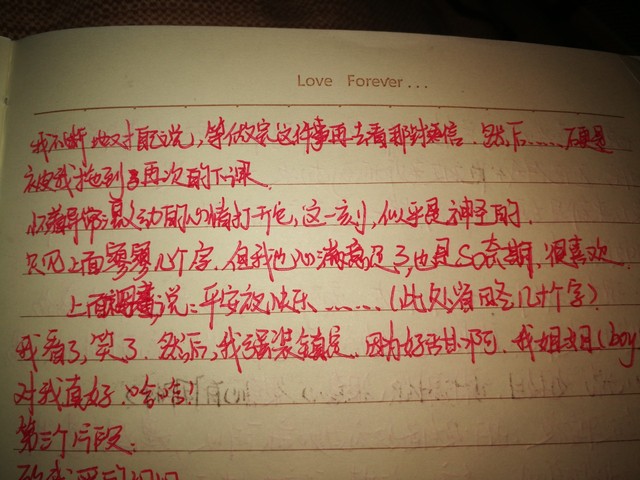 Love Forever...
我不断地对自己说，等做完这件事再去看那封短信．然后……硬是
被我拖到了再次的下课．
怀着异常激动的心情打开它，这一刻，似乎是神圣的．
只见上面寥寥几个字．但我也心满意足了，也是So奈期，很喜欢．
上面说：平安夜快乐……（此处省略几十个字）
我看了，笑了．然后，我强装镇定．因为好甜啊．我姐姐（boy
对我真好．哈哈！
第三个片段：